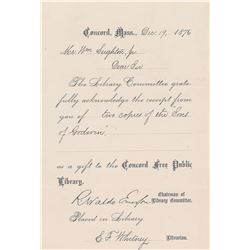 Concord, Mass., Dec. 19, 1876
Mr. Wm. Leighton, Jr
Dear Sir
The Library Committee grate
fully acknowledge the receipt from
you of two copies of the "Sons
of Godwin"
as a gift to the Concord Free Public
Library.
R. Waldo Emerson
Chairman of
Library Committee.
Placed in Library.
E. F. Whitney
Librarian.